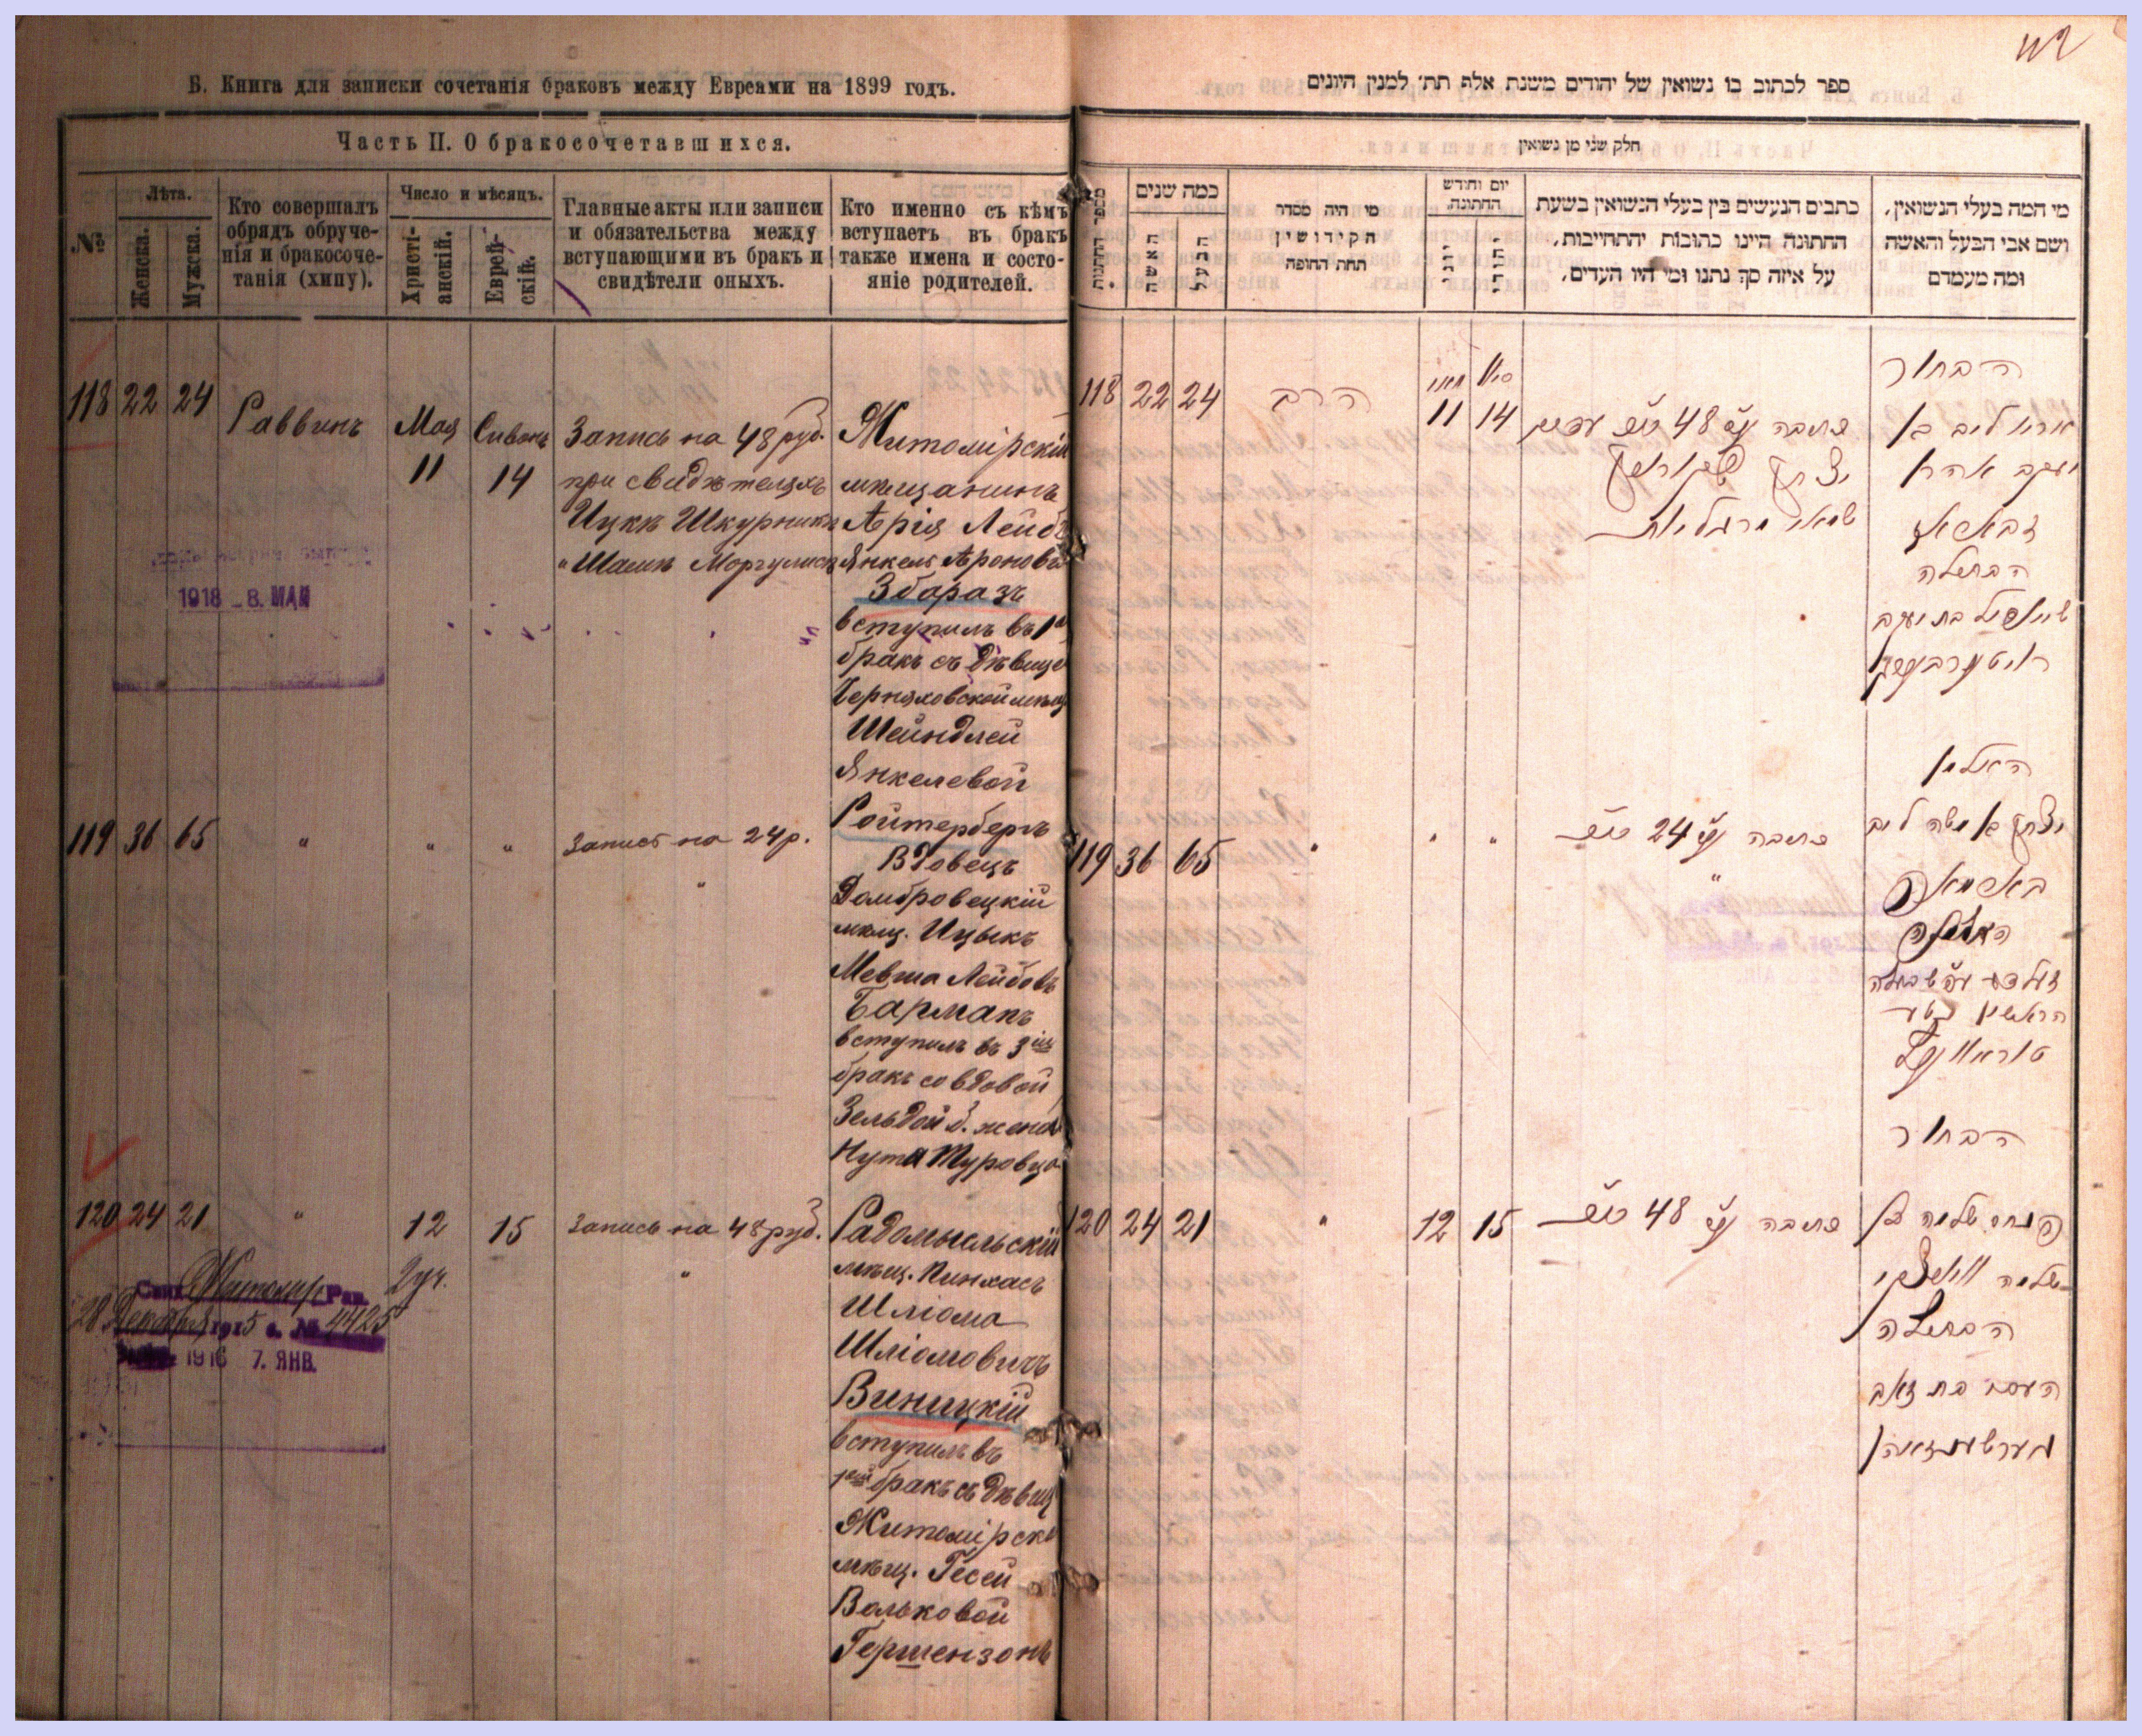 Б. Книга для записки сочетанія браковъ между Евреями на 1899 годъ.
Часть II. О бракосочетавшихся.
№
Лѣта.
Женска.
Мужска.
Кто совершалъ
обрядъ обруче-
нія и бракосоче-
танія (хипу).
Число и мѣсяцъ.
Христі-
анскій.
Еврей-
скій.
Главные акты или записи
и обязательства между
вступающими въ бракъ и
свидѣтели оныхъ.
Кто именно съ кѣмъ
вступаетъ въ бракъ
также имена и состо-
яніе родителей.
118 22 24 Раввинъ Мая Сивонъ
11 14
Запись на 48 руб.
при свидѣтеляхъ
Ицкѣ Шкурникъ
Житомірскій
мѣщанинъ
Арія Лейбъ
Янкель Ароновъ
Збаразъ
вступилъ въ 1й
бракъ съ дѣвице
Черняховской мѣщ
Шейндлей
Янкелевой
Ройтербергъ
1918 - 8. МАЯ
119 36 65 " " " Запись на 24 р.
"
Вдовецъ
Домбровецкій
мѣщ. Ицыкъ
Мевша Лейбовъ
Барманъ
вступилъ въ 3ій
бракъ со вдовой
Зельдой б. жена
Нута Туровца
120 24 21 " 12 15 Запись на 48 руб.
"
Радомысльскій
мѣщ. Пинхасъ
Шліома
Шліомовичъ
Виницкій
вступилъ въ
1ый бракъ съ дѣвиц
Житомірско
мѣщ. Гесей
Вольковой
Гершензонъ
28 Декабря 1915 г. № 4425
1916 7. ЯНВ.
ספר לכתוב בו נשואין של יהודים משנת אלף תת׳ למנין היונים
חלק שני מן נשואין
מספר החתונות
כמה שנים
האשה
הבעל
מי היה מסדר
הקידושין
תחת החופה
יום וחודש
החתונה.
יוני
יהודי
כתבים הנעשים בין בעלי הנשואין בשעת
החתונה היינו כתובות והתחייבות,
על איזה סך נתנו ומי היו העדים,
מי המה בעלי הנשואין,
ושם אבי הבעל והאשה
ומה מעמדם
118 22 24 הרב
11 14
כתובה 48
הבחור
אריו ליב בן
יעקב אהרן
הבתולה
בת יעקב
119 36 65 " " "
כתובה 24
"
האלמן
יצחק בן משה ליב
120 24 21 " 12 15
כתובה 48
הבחור
פנחס שלמה בן
שלמה
הבתולה
העסי בת זאב